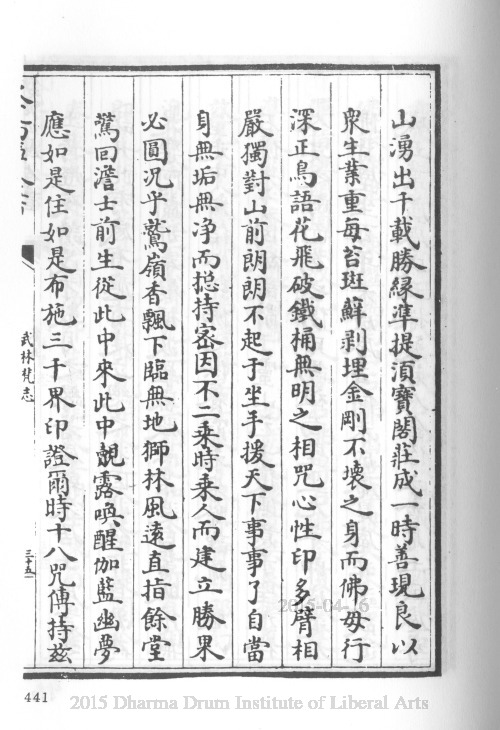 山湧出千載勝緣準提湏寶閣莊成一時善現良以
衆生業重每苔斑蘚剥埋金剛不壞之身而佛毋行
深正鳥語花飛破鐵桶無明之相咒心性印多臂相
嚴獨對山前朗朗不起于坐手援天下事事了自當
身無垢無净而捴持密因不二乗時乗人而建立勝果
必圓况乎鷲嶺香飄下臨無地獅林風遠直指餘堂
驚回澹士前生從此中來此中覷露喚醒伽藍幽夢
應如是住如是布施三千界印證爾時十八咒傳持茲
武林梵志
三十五
441
2015-04-16
2015 Dharma Drum Institute of Liberal Arts